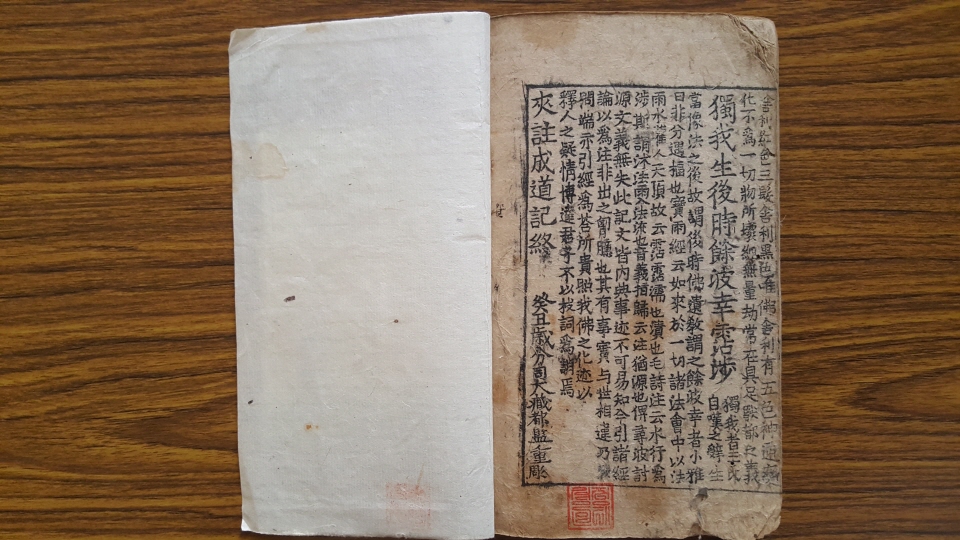 舍利
三
舍利黑色
佛舍利有五色神通
化不爲一切物所壞經無量劫常在具足
獨我生後時餘波幸霑涉
獨我者王氏
自嘆之辭生
當像法之後故謂後時佛遺敎謂之餘波幸者小雅
曰非分遇福也寶雨經云如來於一切諸法會中以法
雨水灌人天頂故云霑霑濡也瀆也毛詩注云水行爲
涉斯謂沐法雨入法流也音義指歸云注猶源也俾尋波討
源文義無失此記文皆內典事迹不可易知今引諸經
論以爲注非出之胷臆也其有事實与世相違乃
問端示引經爲荅所貴照我佛之化迹以
釋人之疑情博達君子不以枝詞爲誚焉
夾註成道記終
癸丑歲分司大藏都監重彫